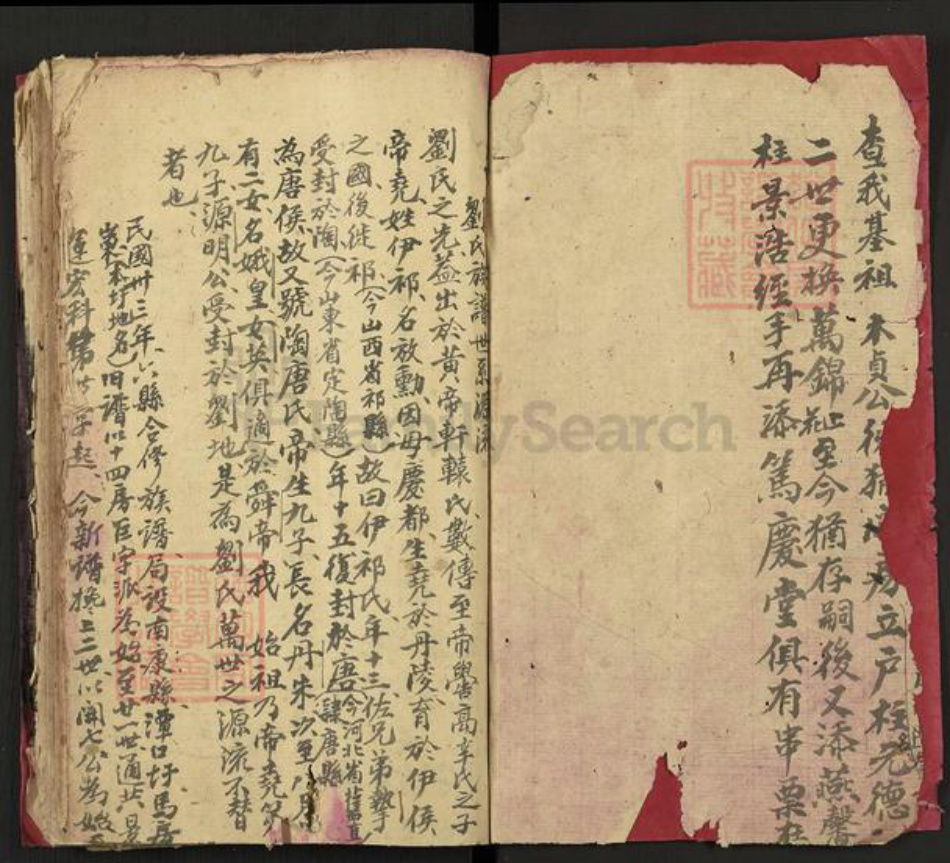 查我基祖 木貞公後 立户柱元德
二世更换萬錦 至今猶存嗣後又添燕馨
柱景浩經手再添篤慶堂俱有串票
劉氏族譜世系源流
劉氏之先蓋出於黄帝軒轅氏數傳至帝嚳高辛氏之子
帝堯姓伊祁名放勳因母慶都生堯於丹陵育於伊侯
之國後徙祁(今山西省祁縣)故曰伊祁氏年十三佐兄弟摯
受封於陶(今山東省定陶縣)年十五復封於唐今河北省 唐縣
為唐侯故又號陶唐氏帝生九子長名丹朱次至
有二女名娥皇女英俱適於舜帝我 始祖乃帝堯第
九子源明公受封於劉地是為劉氏萬世之源流不替
者也
民國卅三年六縣合修族譜局設南康縣潭口圩馬
地名)旧譜以十四房巨字派為始至廿一世通共
運宏科第 字起今新譜 三二世以開七公為始
FamilySearch